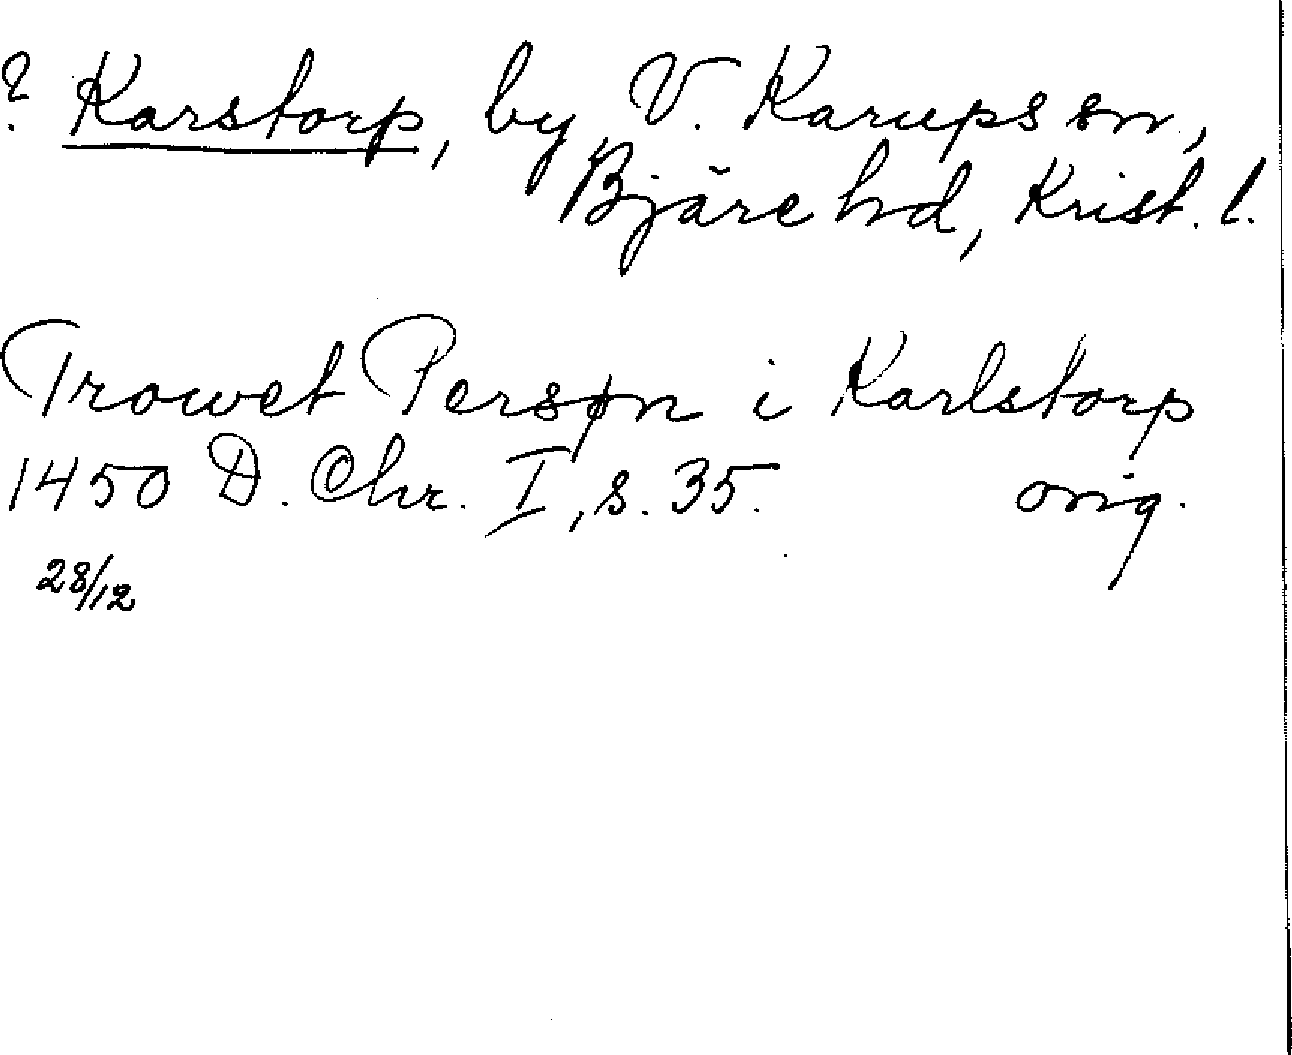 ? Karstorp, by V. Karups sn,
Bjäre hd, Krist. l.
Trowet Persøn i Karlstorp
1450 D. Chr. I, s. 35. orig.
28/12